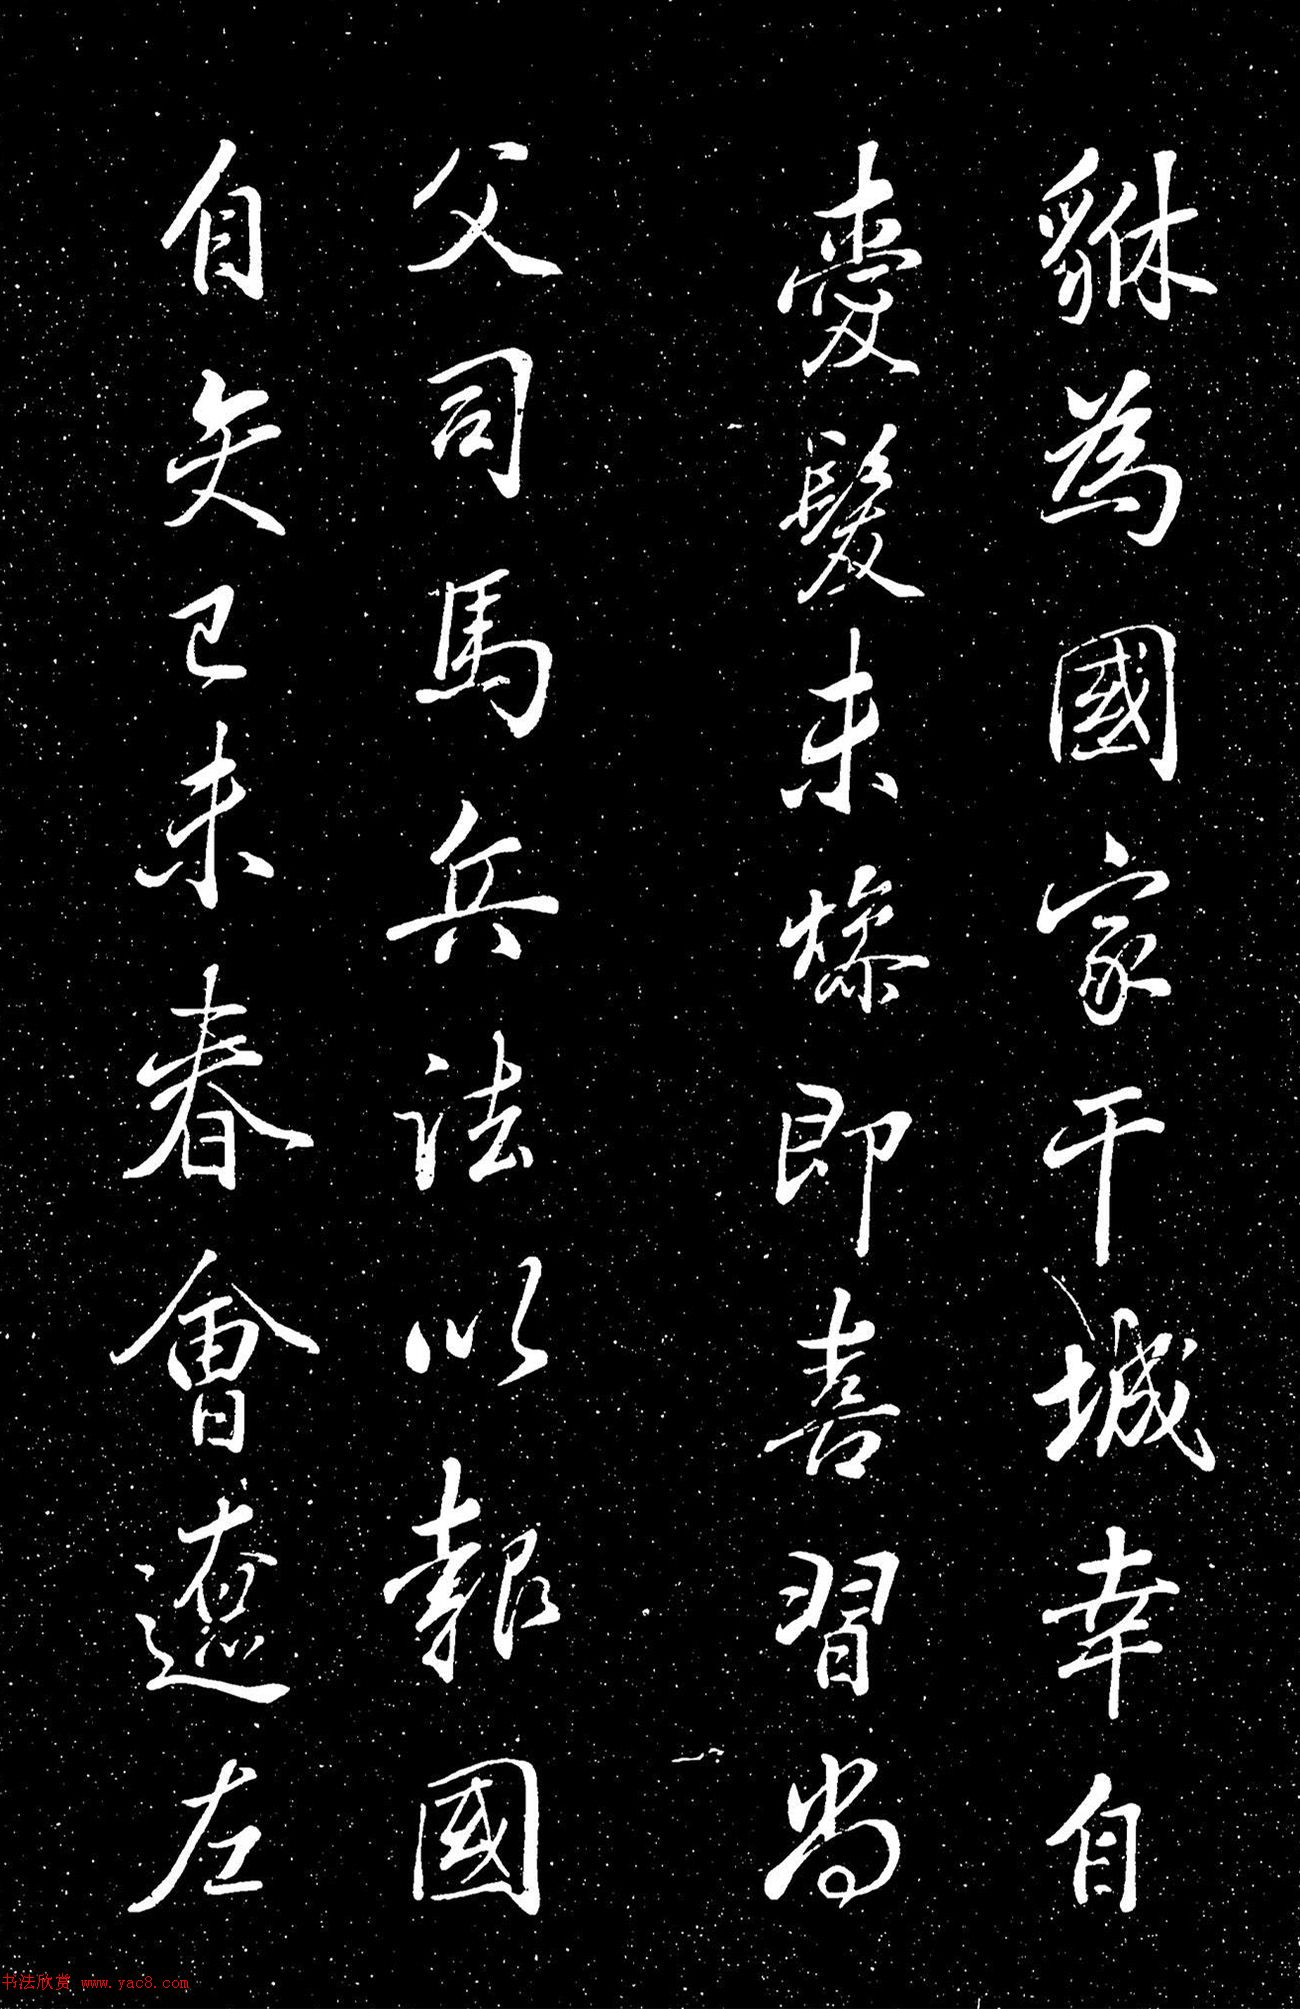 貅為國家干城幸自
愛髮未燥即喜習尚
父司馬兵法以報國
自矢己未春會遼左
书法欣赏 www.yac8.com